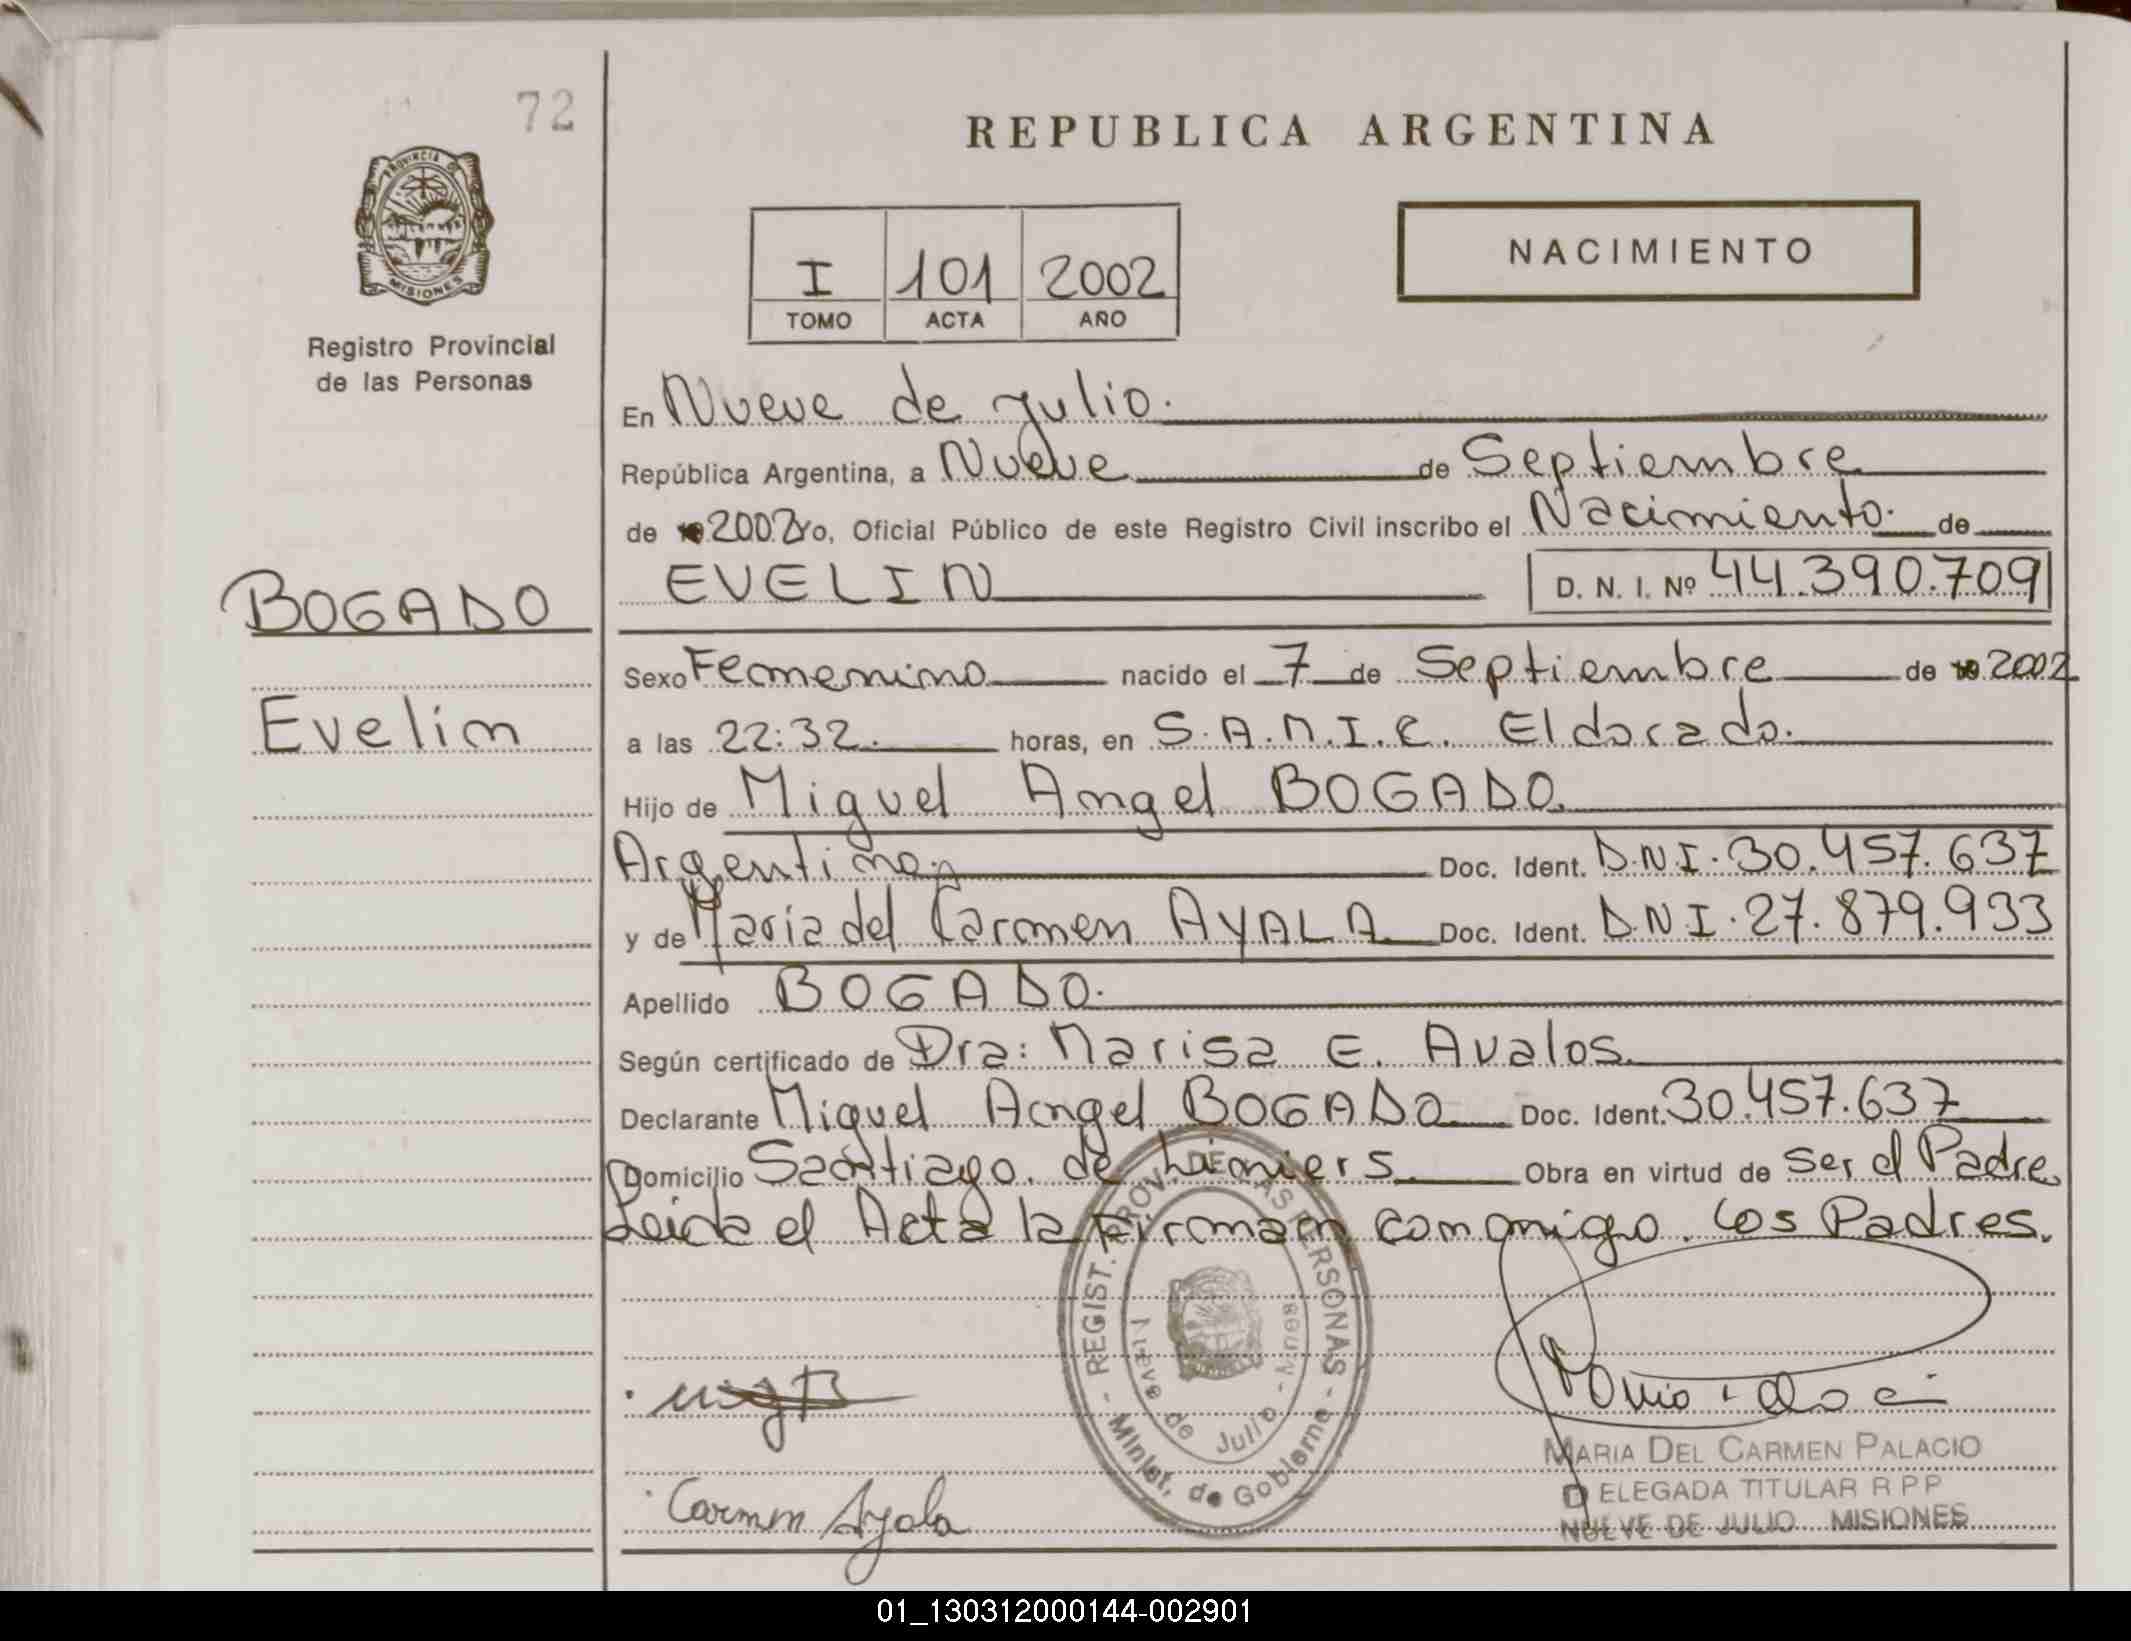 72
REPUBLICA ARGENTINA
PROVINCIA DE
MISIONES
Registro Provincial
de las Personas
I 101 2002
TOMO ACTA AÑO
NACIMIENTO
En Nueve de Julio.
República Argentina, a Nueve de Septiembre
de 2002 Yo, Oficial Público de este Registro Civil inscribo el Nacimiento. de
EVELIN D. N. I. Nº 44.390.709
BOGADO
Evelin
Sexo Femenino nacido el 7 de Septiembre de 2002
a las 22:32. horas, en S.A.M.I.C. Eldorado.
Hijo de Miguel Angel BOGADO.
Argentino; Doc. Ident. D.N.I. 30.457.637
y de Maria del Carmen AYALA Doc. Ident. D.N.I. 27.879.933
Apellido BOGADO.
Según certificado de Dra: Marisa E. Avalos.
Declarante Miguel Angel BOGADO Doc. Ident. 30.457.637
Domicilio Santiago de Liniers Obra en virtud de ser el Padre
Leida el Acta la Firman conmigo. Los Padres.
REGIST. PROV. DE LAS PERSONAS - Minist. de Gobierno -
Nueve de Julio - Mnes
Carmen Ayala
MARIA DEL CARMEN PALACIO
DELEGADA TITULAR R P P
NUEVE DE JULIO MISIONES
01_130312000144-002901